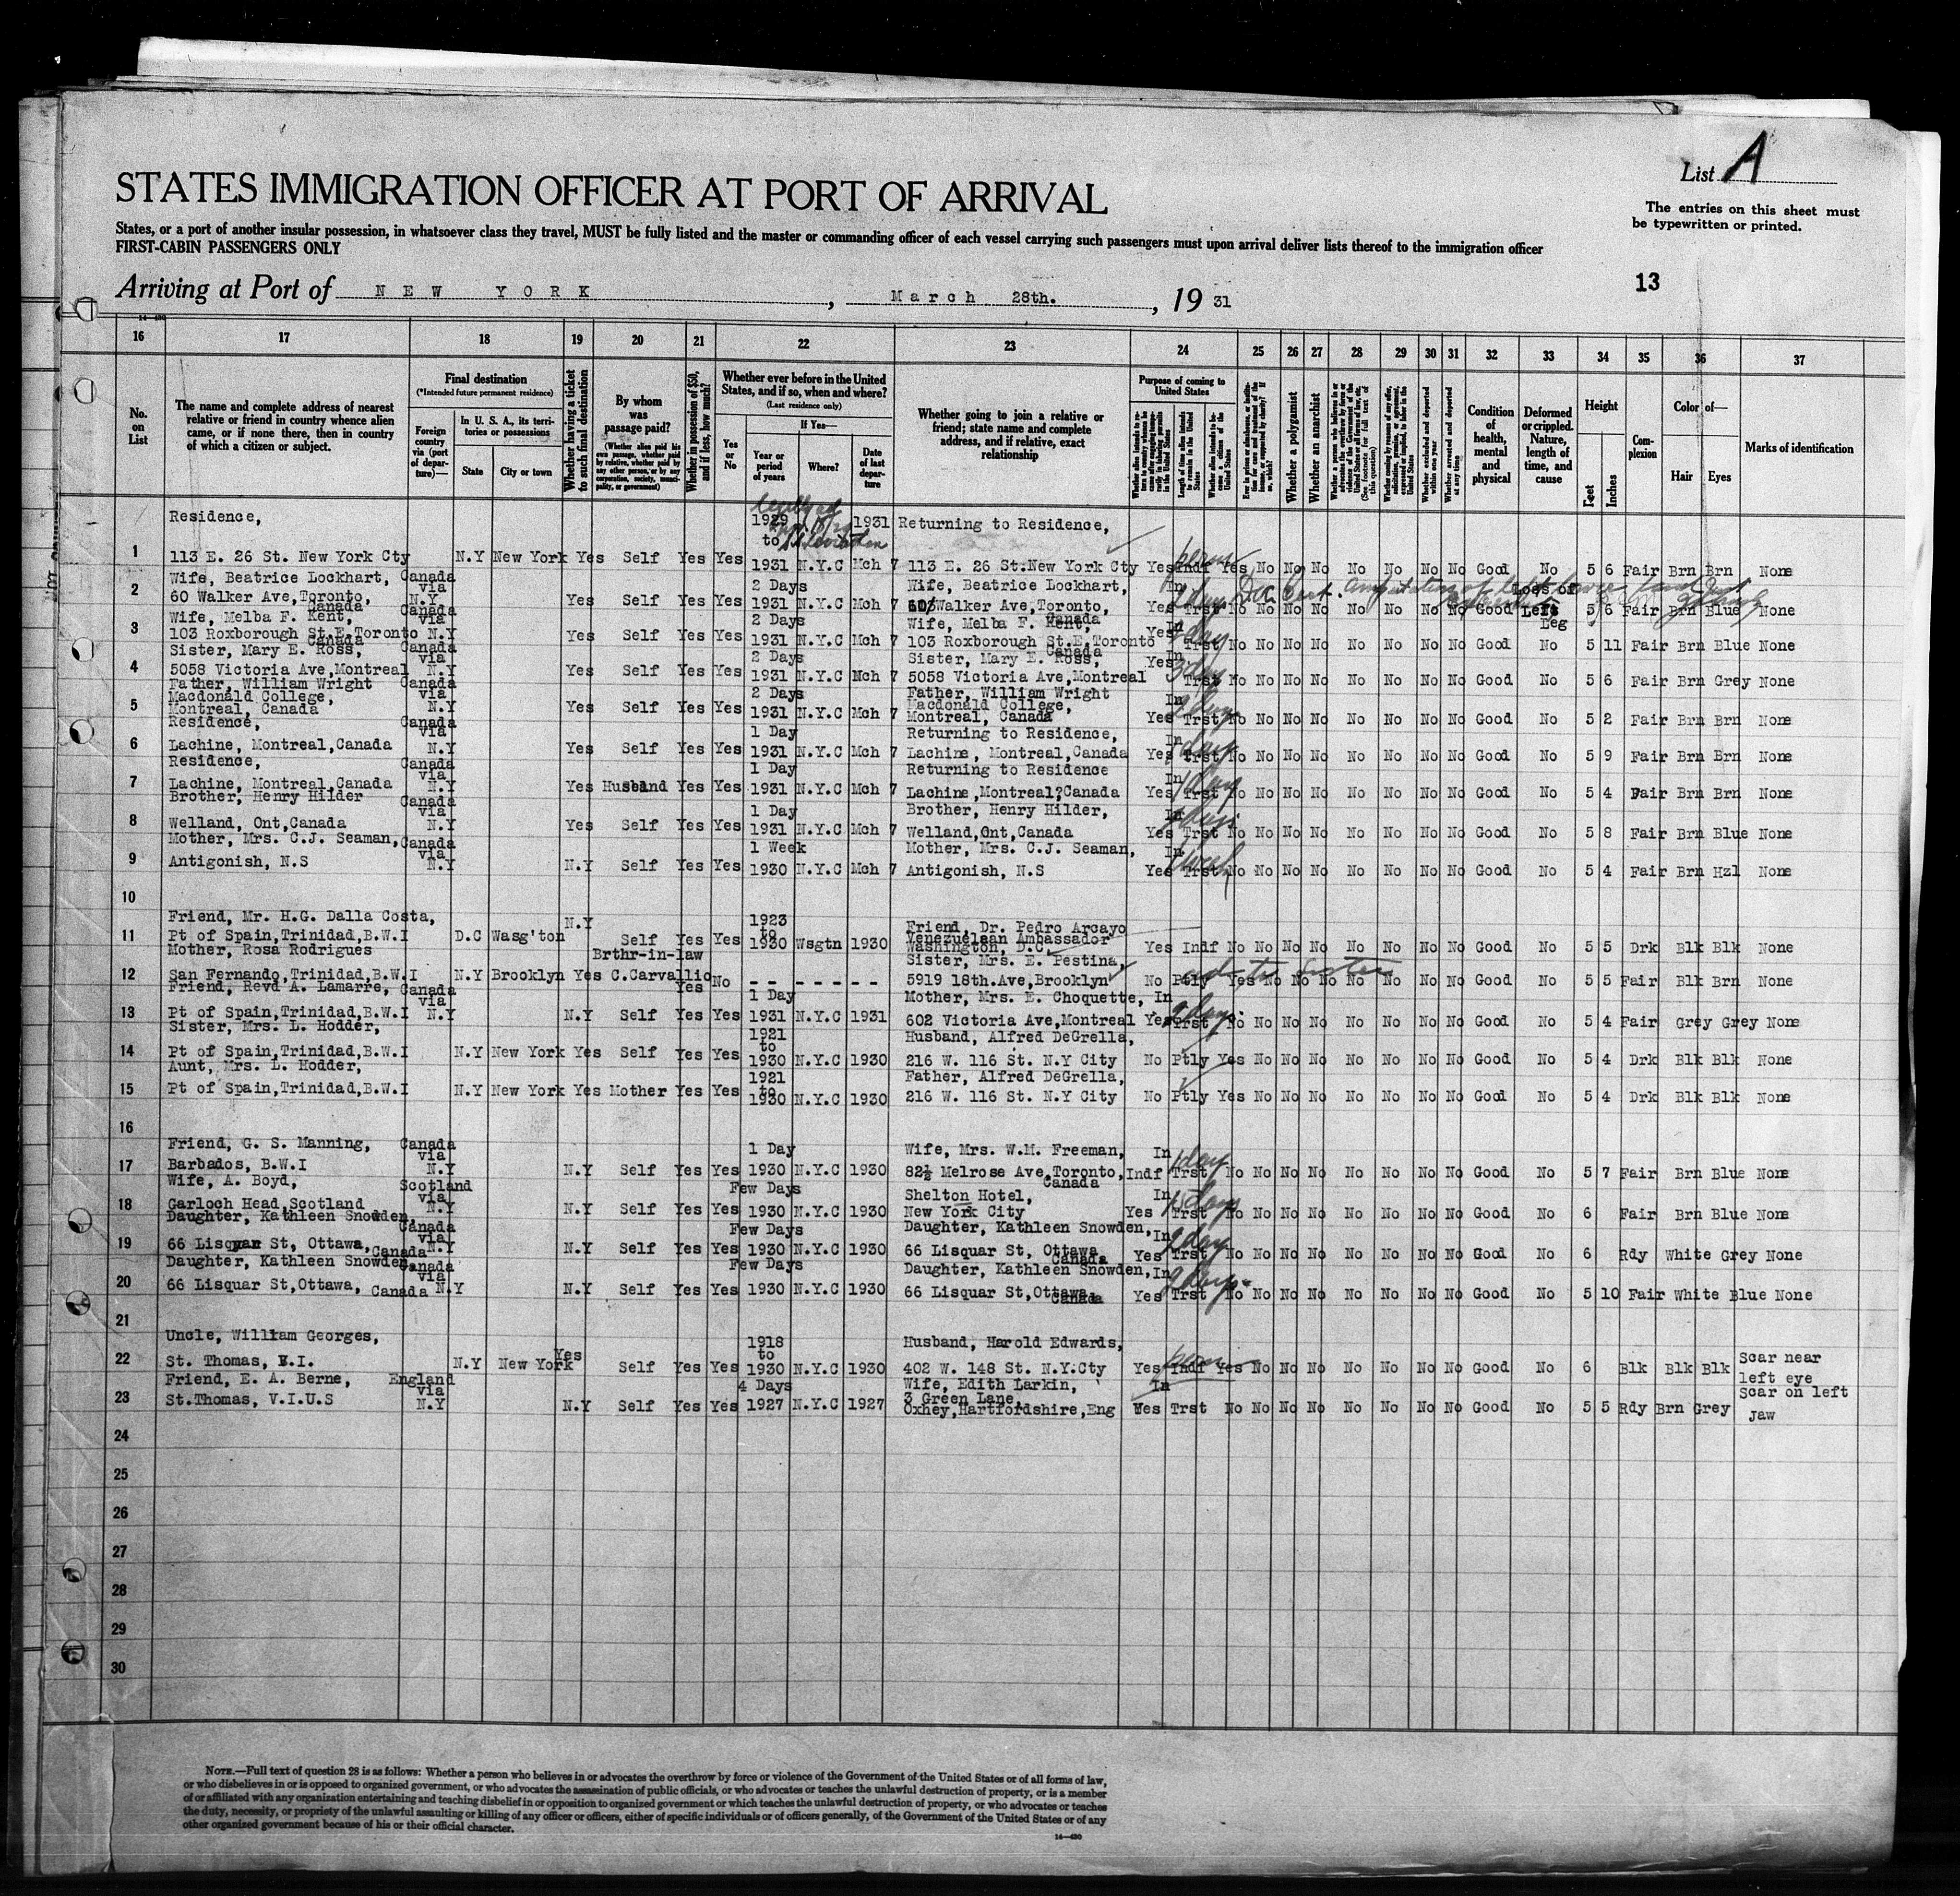 List A
STATES IMMIGRATION OFFICER AT PORT OF ARRIVAL
The entries on this sheet must
be typewritten or printed.
States, or a port of another insular possession, in whatsoever class they travel, MUST be fully listed and the master or commanding officer of each vessel carrying such passengers must upon arrival deliver lists thereof to the immigration officer
FIRST-CABIN PASSENGERS ONLY
13
Arriving at Port of NEW YORK, March 28th., 1931
16 17 18 19 20 21 22 23 24 25 26 27 28 29 30 31 32 33 34 35 36 37
No. on List
The name and complete address of nearest relative or friend in country whence alien came, or if none there, then in country of which a citizen or subject.
Final destination
(*Intended future permanent residence)
Foreign country via (port of departure)—
In U. S. A., its territories or possessions
State
City or town
Whether having a ticket to such final destination
By whom was passage paid?
(Whether alien paid his own passage, whether paid by relative, whether paid by any other person, or by any corporation, society, municipality, or government)
Whether in possession of $50, and if less, how much?
Whether ever before in the United States, and if so, when and where?
(Last residence only)
Yes or No
If Yes—
Year or period of years
Where?
Date of last departure
Whether going to join a relative or friend; state name and complete address, and if relative, exact relationship
Purpose of coming to United States
Whether a polygamist
Whether an anarchist
Condition of health, mental and physical
Deformed or crippled. Nature, length of time, and cause
Height
Feet
Inches
Complexion
Color of—
Hair
Eyes
Marks of identification
Residence, 1929 to 1931 Returning to Residence,
1 113 E. 26 St. New York Cty N.Y New York Yes Self Yes Yes 1931 N.Y.C Mch 7 113 E. 26 St.New York Cty Yes Indf Yes No No No No No No No Good No 5 6 Fair Brn Brn None
Wife, Beatrice Lockhart, Canada via 2 Days Wife, Beatrice Lockhart, In Loss of
2 60 Walker Ave, Toronto, Canada N.Y Yes Self Yes Yes 1931 N.Y.C Mch 7 Walker Ave, Toronto, Canada Yes Trst No No No No No No No Good Left Leg 5 6 Fair Brn Blue None
Wife, Melba F. Kent, Canada via 2 Days Wife, Melba F. Kent, In
3 103 Roxborough St.E.Toronto Canada N.Y Yes Self Yes Yes 1931 N.Y.C Mch 7 103 Roxborough St.E.Toronto Canada Yes Trst No No No No No No No No Good No 5 11 Fair Brn Blue None
Sister, Mary E. Ross, Canada via 2 Days Sister, Mary E. Ross, In
4 5058 Victoria Ave,Montreal N.Y Yes Self Yes Yes 1931 N.Y.C Mch 7 5058 Victoria Ave,Montreal Yes Trst No No No No No No No No Good No 5 6 Fair Brn Grey None
Father, William Wright Canada via 2 Days Father, William Wright In
5 Macdonald College, Montreal, Canada N.Y Yes Self Yes Yes 1931 N.Y.C Mch 7 Macdonald College, Montreal, Canada Yes Trst No No No No No No No No Good No 5 2 Fair Brn Brn None
Residence, Canada via 1 Day Returning to Residence, In
6 Lachine, Montreal,Canada N.Y Yes Self Yes Yes 1931 N.Y.C Mch 7 Lachine, Montreal,Canada Yes Trst No No No No No No No No Good No 5 9 Fair Brn Brn None
Residence, Canada via 1 Day Returning to Residence In
7 Lachine, Montreal,Canada N.Y Yes Husband Yes Yes 1931 N.Y.C Mch 7 Lachine,Montreal?Canada Yes Trst No No No No No No No No Good No 5 4 Fair Brn Brn None
Brother, Henry Hilder Canada via 1 Day Brother, Henry Hilder, In
8 Welland, Ont,Canada N.Y Yes Self Yes Yes 1931 N.Y.C Mch 7 Welland,Ont,Canada Yes Trst No No No No No No No No Good No 5 8 Fair Brn Blue None
Mother, Mrs. C.J. Seaman, Canada via 1 Week Mother, Mrs. C.J. Seaman, In
9 Antigonish, N.S N.Y N.Y Self Yes Yes 1930 N.Y.C Mch 7 Antigonish, N.S Yes Trst No No No No No No No No Good No 5 4 Fair Brn Hzl None
10
Friend, Mr. H.G. Dalla Costa, N.Y 1923 to Friend, Dr. Pedro Arcayo
11 Pt of Spain,Trinidad,B.W.I D.C Wasg'ton Self Yes Yes 1930 Wsgtn 1930 Venezuelean Ambassador Washington, D.C Yes Indf No No No No No No No No Good No 5 5 Drk Blk Blk None
Mother, Rosa Rodrigues Brthr-in-law Sister, Mrs. E. Pestina, ad to Sister
12 San Fernando,Trinidad,B.W.I N.Y Brooklyn Yes C.Carvallio Yes No - - - - - - - 5919 18th.Ave,Brooklyn No Ptly Yes No No No No No No No Good No 5 5 Fair Blk Brn None
Friend, Revd A. Lamarre, Canada via 1 Day Mother, Mrs. E. Choquette, In
13 Pt of Spain,Trinidad,B.W.I N.Y N.Y Self Yes Yes 1931 N.Y.C 1931 602 Victoria Ave,Montreal Yes Trst No No No No No No No No Good No 5 4 Fair Grey Grey None
Sister, Mrs. L. Hodder, 1921 to Husband, Alfred DeGrella,
14 Pt of Spain,Trinidad,B.W.I N.Y New York Yes Self Yes Yes 1930 N.Y.C 1930 216 W. 116 St. N.Y City No Ptly Yes No No No No No No No Good No 5 4 Drk Blk Blk None
Aunt, Mrs. L. Hodder, 1921 to Father, Alfred DeGrella,
15 Pt of Spain,Trinidad,B.W.I N.Y New York Yes Mother Yes Yes 1930 N.Y.C 1930 216 W. 116 St. N.Y City No Ptly Yes No No No No No No No Good No 5 4 Drk Blk Blk None
16
Friend, G. S. Manning, Canada via 1 Day Wife, Mrs. W.M. Freeman, In 1 day
17 Barbados, B.W.I N.Y N.Y Self Yes Yes 1930 N.Y.C 1930 82½ Melrose Ave,Toronto, Canada Indf Trst No No No No No No No No Good No 5 7 Fair Brn Blue None
Wife, A. Boyd, Scotland via Few Days Shelton Hotel, In
18 Garloch Head,Scotland N.Y N.Y Self Yes Yes 1930 N.Y.C 1930 New York City Yes Trst No No No No No No No No Good No 6 Fair Brn Blue None
Daughter, Kathleen Snowden, Canada via Few Days Daughter, Kathleen Snowden, In
19 St, Ottawa, Canada N.Y N.Y Self Yes Yes 1930 N.Y.C 1930 66 Lisquar St, Ottawa Canada Yes Trst No No No No No No No No Good No 6 Rdy White Grey None
Daughter, Kathleen Snowden, Canada via Few Days Daughter, Kathleen Snowden, In
20 66 Lisquar St,Ottawa, Canada N.Y N.Y Self Yes Yes 1930 N.Y.C 1930 66 Lisquar St,Ottawa, Canada Yes Trst No No No No No No No No Good No 5 10 Fair White Blue None
21
Uncle, William Georges, 1918 to Husband, Harold Edwards,
22 St. Thomas, V.I. N.Y New York Yes Self Yes Yes 1930 N.Y.C 1930 402 W. 148 St. N.Y.Cty Yes Indf Yes No No No No No No No Good No 6 Blk Blk Blk Scar near left eye
Friend, E. A. Berne, England via 4 Days Wife, Edith Larkin, In
23 St.Thomas, V.I.U.S N.Y N.Y Self Yes Yes 1927 N.Y.C 1927 3 Green Lane, Oxhey,Hartfordshire,Eng Yes Trst No No No No No No No No Good No 5 5 Rdy Brn Grey Scar on left Jaw
24
25
26
27
28
29
30
NOTE.—Full text of question 28 is as follows: Whether a person who believes in or advocates the overthrow by force or violence of the Government of the United States or of all forms of law,
or who disbelieves in or is opposed to organized government, or who advocates the assassination of public officials, or who advocates or teaches the unlawful destruction of property, or is a member
of or affiliated with any organization entertaining and teaching disbelief in or opposition to organized government or which teaches the unlawful destruction of property, or who advocates or teaches
the duty, necessity, or propriety of the unlawful assaulting or killing of any officer or officers, either of specific individuals or of officers generally, of the Government of the United States or of any
other organized government because of his or their official character.
14—430